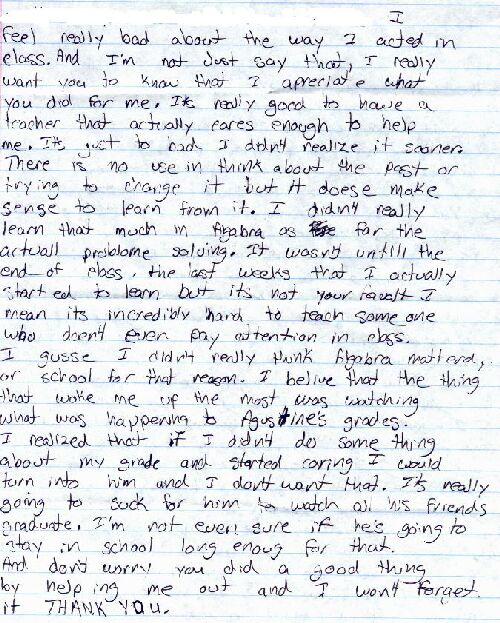 I
feel really bad about the way I acted in
class. And I'm not Just say that, I really
want you to know that I apreciate what
you did for me. It's really good to have a
teacher that actually cares enough to help
me. It's just to bad I didn't realize it sooner.
There is no use in think about the past or
trying to change it but it doese make
sense to learn from it. I didn't really
learn that much in Algabra as for the
actuall problome solving. It wasn't untill the
end of class, the last weeks that I actually
started to learn but its not your fault I
mean its incredibly hard to teach some one
who doesn't even pay attention in class.
I gusse I didn't really think Algabra matterd,
or school for that reason. I belive that the thing
that woke me up the most was watching
what was happening to Agustine's grades.
I realized that if I didn't do some thing
about my grade and started caring I would
turn into him and I don't want that. It's really
going to suck for him to watch all his friends
graduate. I'm not even sure if he's going to
stay in school long enoug for that.
And don't worry you did a good thing
by helping me out and I won't forget
it THANK YOU.